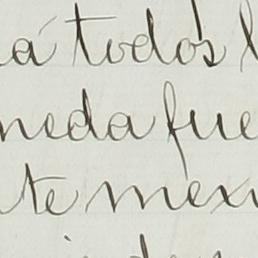 a todos l
neda fue
te mexi